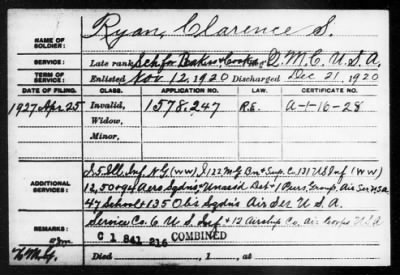 Ryan, Clarence S.
NAME OF SOLDIER:
SERVICE: Late rank Sch. for Bakers & Cooks Q.M.C. U.S.A.
TERM OF SERVICE: Enlisted Nov. 12, 1920 Discharged Dec 21, 1920
DATE OF FILING. CLASS. APPLICATION NO. LAW. CERTIFICATE NO.
1927 Apr 25 Invalid, 1578247 R.E. A-1-16-28
Widow,
Minor,
I, 5 Ill. Inf. N.G. (WW) I, 122 M.G. Bn & Sup. C. 131 U.S. Inf (WW)
ADDITIONAL SERVICES: Aero Sqdns Unasgd Det & 1 Purs. Group, Air Ser USA
47 School & 135 Obs Sqdns Air Ser U.S.A.
Service Co. 6 U.S. Inf & 12 Airship Co. Air Corps USA
REMARKS: C 1 841 216 COMBINED
Died, 1 , at